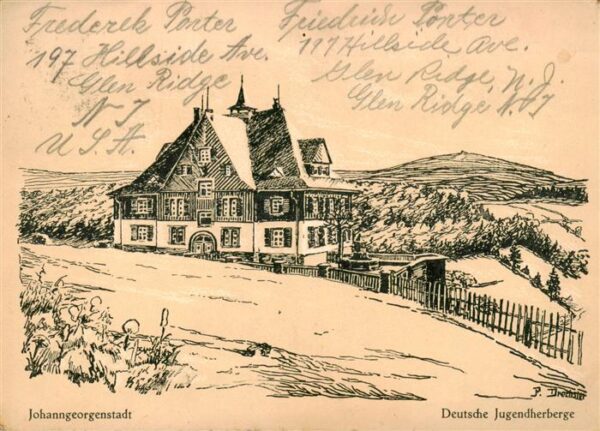 Frederek Porter
197 Hillside Ave.
Glen Ridge
N J
U.S.A.
Friedrich Porter
117 Hillside Ave.
Glen Ridge, N.J.
Glen Ridge N.J
Johanngeorgenstadt
Deutsche Jugendherberge